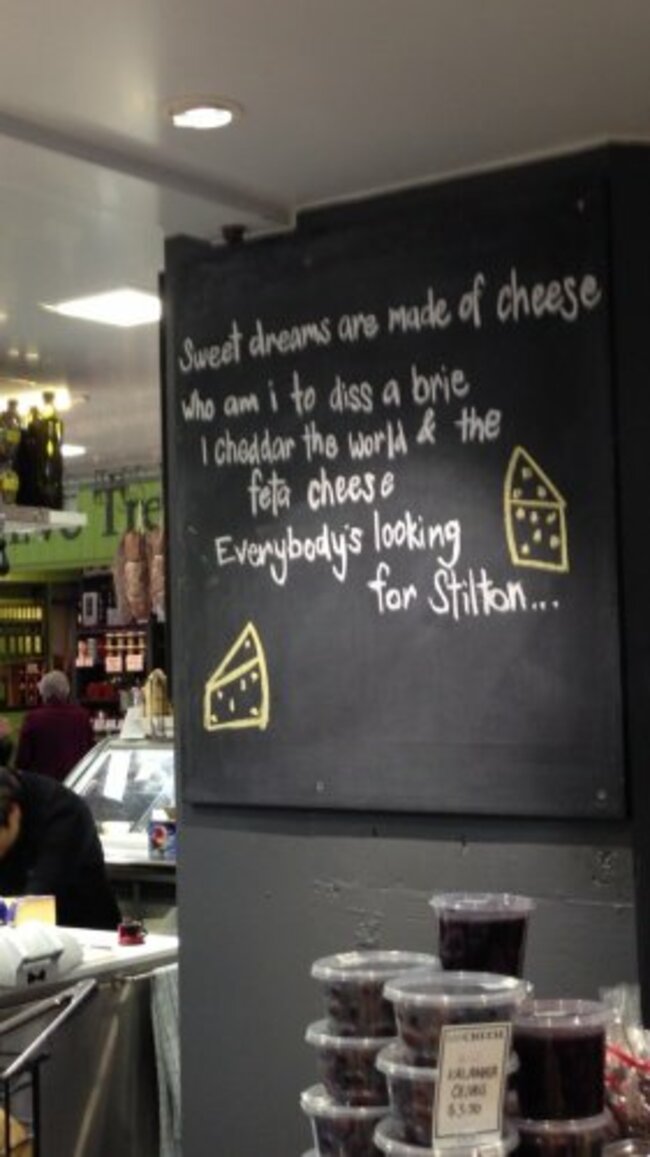 Sweet dreams are made of cheese
Who am i to diss a brie
I cheddar the world & the
feta cheese
Everybody's looking
for Stilton...
Tre
CHEESE
KALAMATA
OLIVES